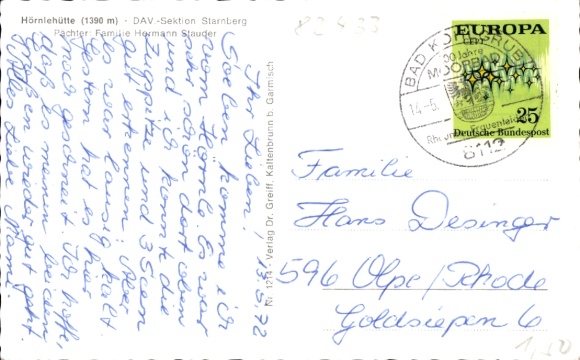 Hörnlehütte (1390 m) · DAV.-Sektion Starnberg
Pächter: Familie Hermann Stauder
82433
Ihr Lieben! 13.5.72
Soeben komme ich
vom Hörnle. Es war
sehr schön dort oben
und ich konnte die
Zugspitze und
erkennen. Aber
es war lausig kalt.
Gestern hat es hier
noch geschneit. Ich hoffe,
daß es meinen beiden
wieder gut geht.
Nr. 1214 · Verlag Dr. Greiff, Kaltenbrunn b. Garmisch
EUROPA
25
Deutsche Bundespost
BAD KOHLGRUB
Jahre
MOORBAD
14.-5.
Rheuma Frauenleiden
8112
Familie
Hans Desinger
596 Olpe/Rhode
Goldsiepen 6
1,50